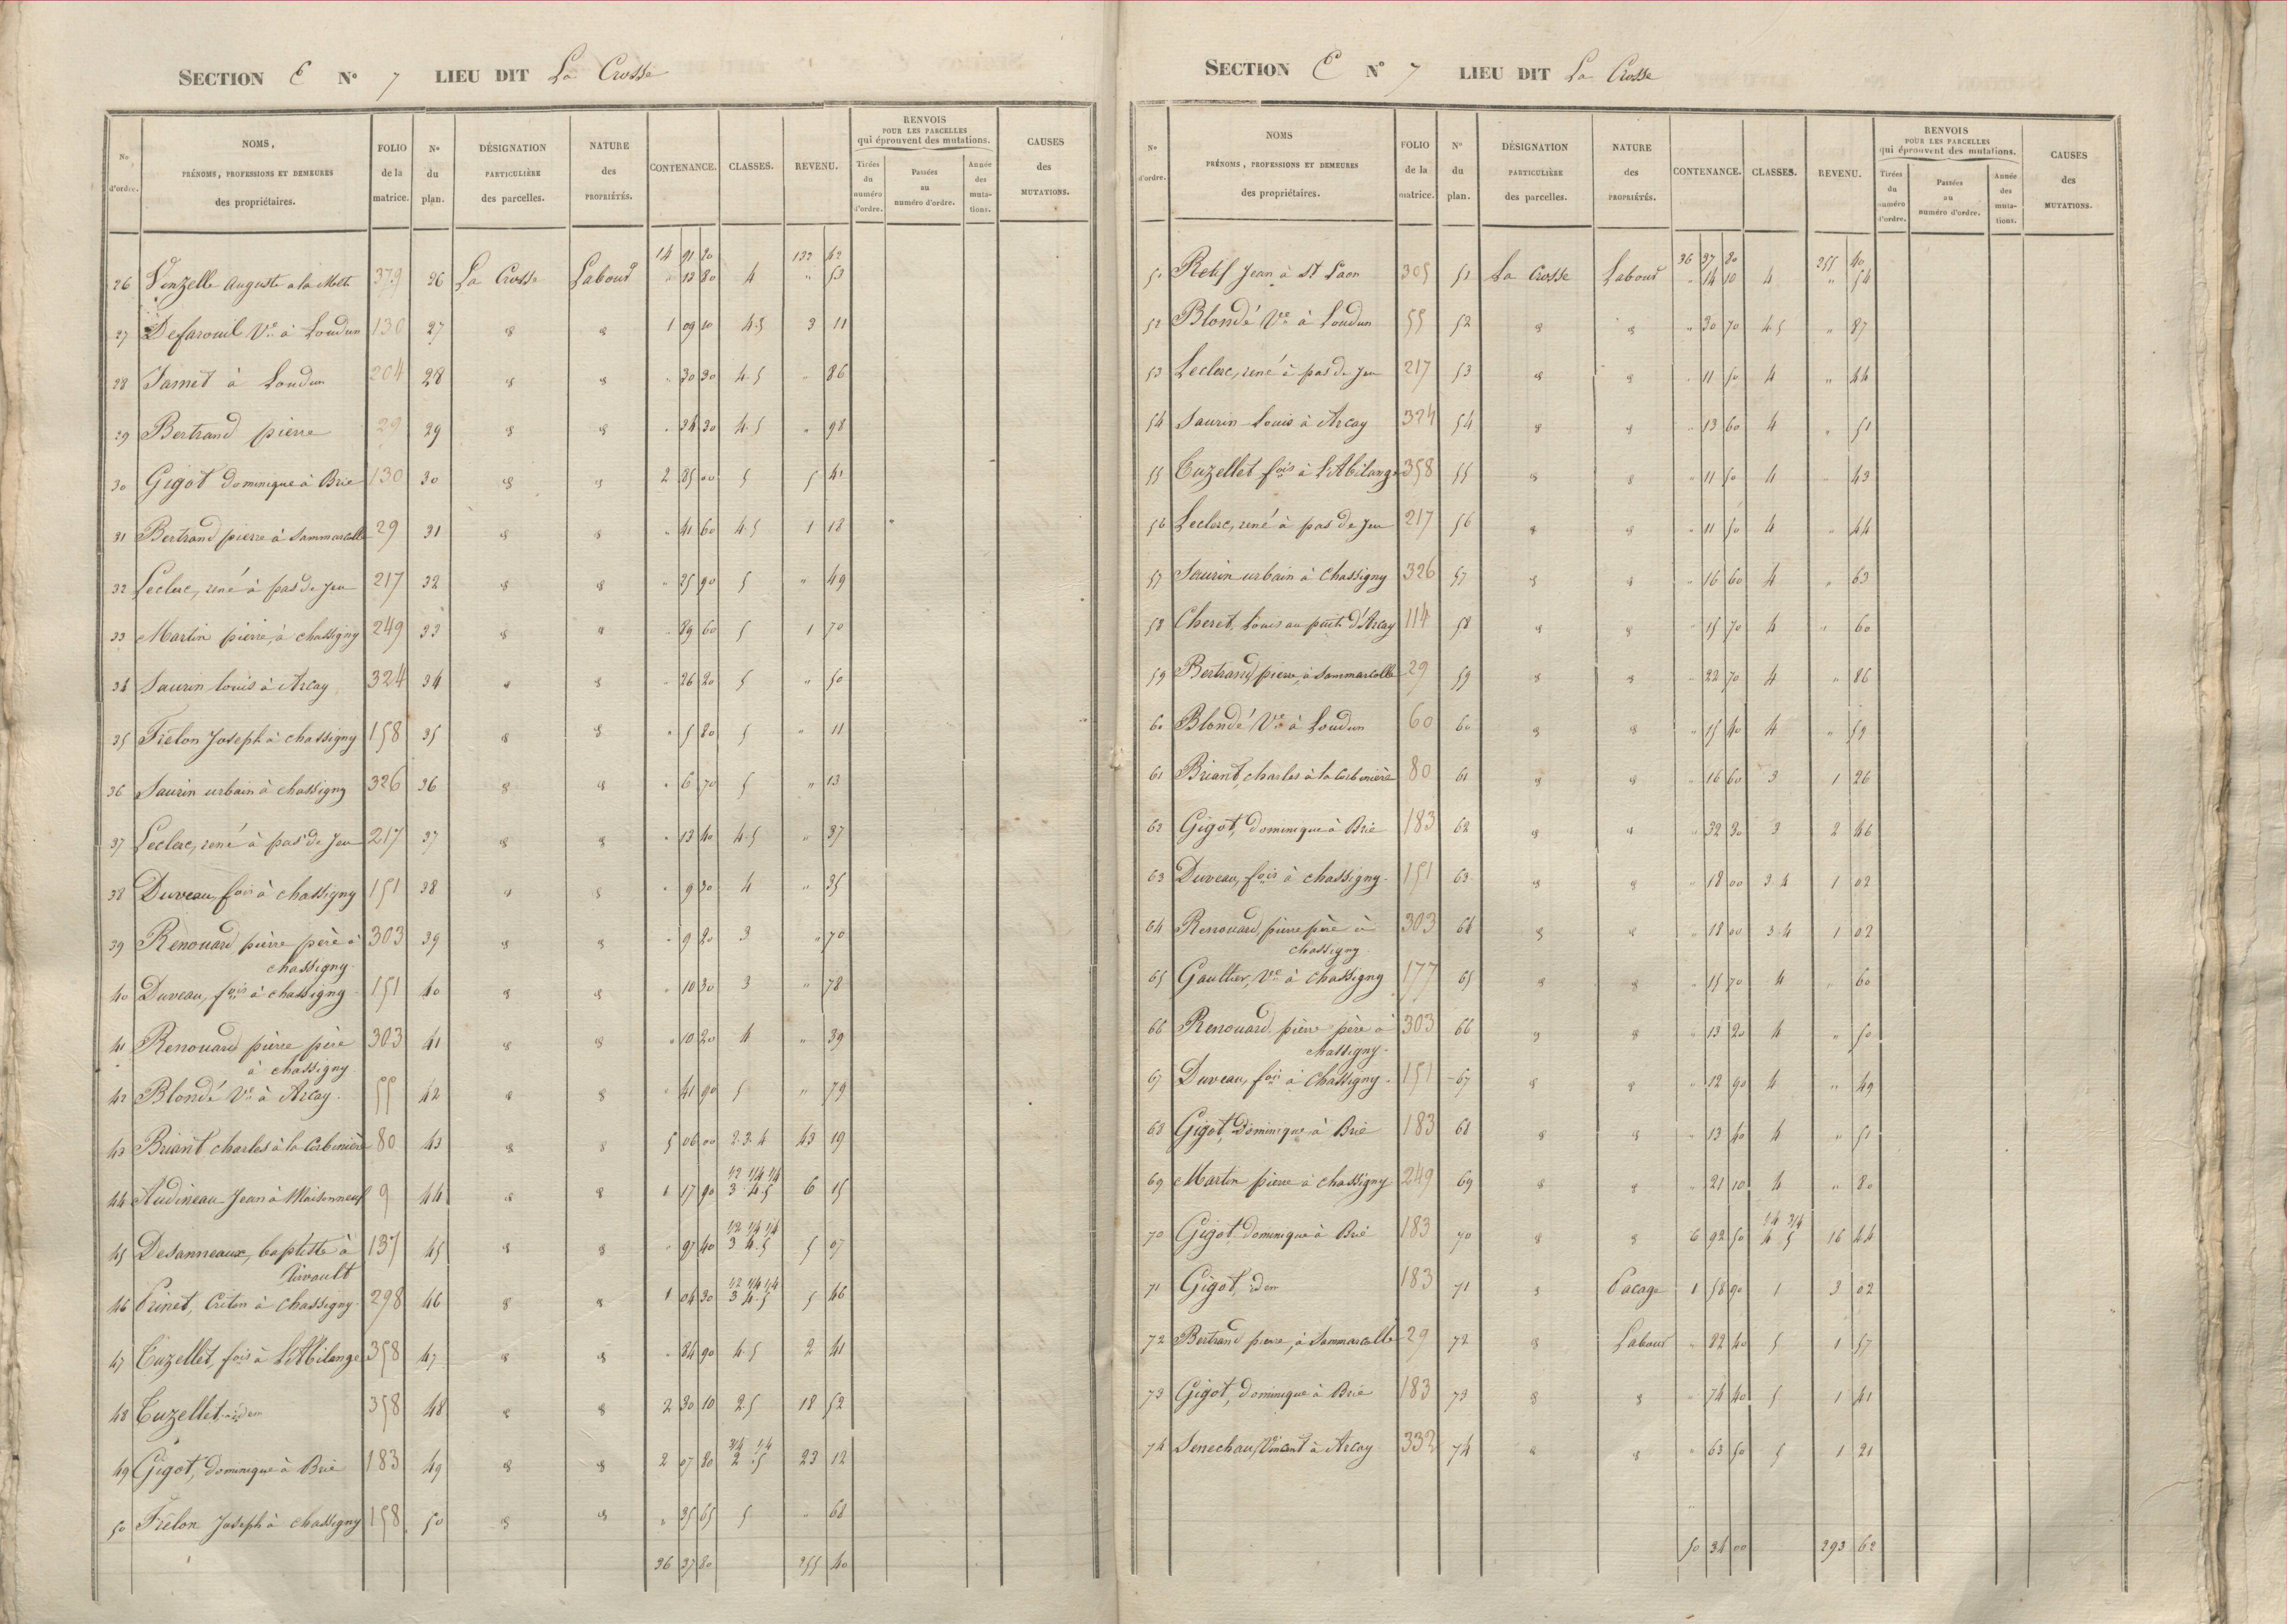 SECTION C N° 7 LIEU DIT La Crosse
No d'ordre. NOMS, PRÉNOMS, PROFESSIONS ET DEMEURES des propriétaires. FOLIO de la matrice. N° du plan. DÉSIGNATION PARTICULIÈRE des parcelles. NATURE des PROPRIÉTÉS. CONTENANCE. CLASSES. REVENU. RENVOIS POUR LES PARCELLES qui éprouvent des mutations. Tirées du numéro d'ordre. Passées au numéro d'ordre. Année des mutations. CAUSES des MUTATIONS.
14 91 20 132 42
26 Venzelle Auguste a la Motte 379 26 La Crosse Labour " 13 80 4 " 53
27 Defarouil Ve à Loudun 130 27 " " 1 09 10 4.5 3 11
28 Jamet à Loudun 204 28 " " " 30 30 4.5 " 86
29 Bertrand pierre 29 29 " " " 34 30 4.5 " 98
30 Gigot dominique à Brie 130 30 " " 2 85 00 5 5 41
31 Bertrand pierre à Sammarcolle 29 31 " " " 41 60 4.5 1 18
32 Leclerc, rené à pas de Jeu 217 32 " " " 25 90 5 " 49
33 Martin pierre, à chassigny 249 33 " " " 89 60 5 1 70
34 Saurin louis à Arcay 324 34 " " " 26 20 5 " 50
35 Frélon Joseph à chassigny 158 35 " " " 5 80 5 " 11
36 Saurin urbain à chassigny 326 36 " " " 6 70 5 " 13
37 Leclerc, rené à pas de Jeu 217 37 " " " 13 40 4.5 " 37
38 Duveau, fois à chassigny 151 38 " " " 9 30 4 " 35
39 Renouard, pierre père à 303 39 " " " 9 20 3 " 70
chassigny
40 Duveau, fois à chassigny 151 40 " " " 10 30 3 " 78
41 Renouard pierre père 303 41 " " " 10 20 4 " 39
à chassigny
42 Blondé Ve à Arcay 55 42 " " " 41 90 5 " 79
43 Briant charles à la Corbinière 80 43 " " 5 06 00 2.3.4 43 19
1/2 1/4 1/4
44 Audineau Jean à Maisonneuf 9 44 " " 1 17 90 3 4.5 6 15
1/2 1/4 1/4
45 Desanneaux, baptiste à 137 45 " " " 97 40 3 4.5 5 07
Airvault
1/2 1/4 1/4
46 Prinet, Criton à Chassigny 298 46 " " 1 04 30 3 4.5 5 46
47 Cuzellet, fois à L'Abilange 358 47 " " " 84 90 4.5 2 41
48 Cuzellet, idem 358 48 " " 2 30 10 2.5 18 52
3/4 1/4
49 Gigot, dominique à Brie 183 49 " " 2 07 80 2 .5 23 12
50 Frélon Joseph à chassigny 158 50 " " " 35 65 5 " 68
36 37 80 255 40
SECTION C N° 7 LIEU DIT La Crosse
N° d'ordre. NOMS PRÉNOMS, PROFESSIONS ET DEMEURES des propriétaires. FOLIO de la matrice. N° du plan. DÉSIGNATION PARTICULIÈRE des parcelles. NATURE des PROPRIÉTÉS. CONTENANCE. CLASSES. REVENU. RENVOIS POUR LES PARCELLES qui éprouvent des mutations. Tirées du numéro d'ordre. Passées au numéro d'ordre. Année des mutations. CAUSES des MUTATIONS.
36 37 80 255 40
51 Retif Jean à St Laon 305 51 La Crosse Labour " 14 10 4 " 54
52 Blondé Ve à Loudun 55 52 " " " 30 70 4.5 " 87
53 Leclerc, rené à pas de Jeu 217 53 " " " 11 50 4 " 44
54 Saurin Louis à Arcay 324 54 " " " 13 60 4 " 51
55 Cuzellet fois à L'Abilange 358 55 " " " 11 50 4 " 43
56 Leclerc, rené à pas de Jeu 217 56 " " " 11 50 4 " 44
57 Saurin urbain à Chassigny 326 57 " " " 16 60 4 " 63
58 Cheret, Louis au petit d'Arcay 114 58 " " " 15 70 4 " 60
59 Bertrand, pierre, à Sammarcolle 29 59 " " " 22 70 4 " 86
60 Blondé Ve à Loudun 60 60 " " " 15 40 4 " 59
61 Briant, charles à la Corbinière 80 61 " " " 16 60 3 1 26
62 Gigot, dominique à Brie 183 62 " " " 32 30 3 2 46
63 Duveau, fois à chassigny 151 63 " " " 18 00 3 4 1 02
64 Renouard, pierre père à 303 64 " " " 18 00 3.4 1 02
chassigny
65 Gaultier, Ve à Chassigny 177 65 " " " 15 70 4 " 60
66 Renouard, pierre père à 303 66 " " " 13 20 4 " 50
chassigny
67 Duveau, fois à Chassigny 151 67 " " " 12 90 4 " 49
68 Gigot, Dominique à Brie 183 68 " " " 13 40 4 " 51
69 Martin pierre à chassigny 249 69 " " " 21 10 4 " 80
1/4 3/4
70 Gigot, dominique à Brie 183 70 " " 6 92 50 4 5 16 44
71 Gigot, idem 183 71 " Pacage 1 58 90 1 3 02
72 Bertrand pierre, à Sammarcolle 29 72 " Labour " 82 40 5 1 57
73 Gigot, dominique à Brie 183 73 " " " 74 40 5 1 41
74 Senechau, Vincent à Arcay 332 74 " " " 63 50 5 1 21
50 34 00 293 62